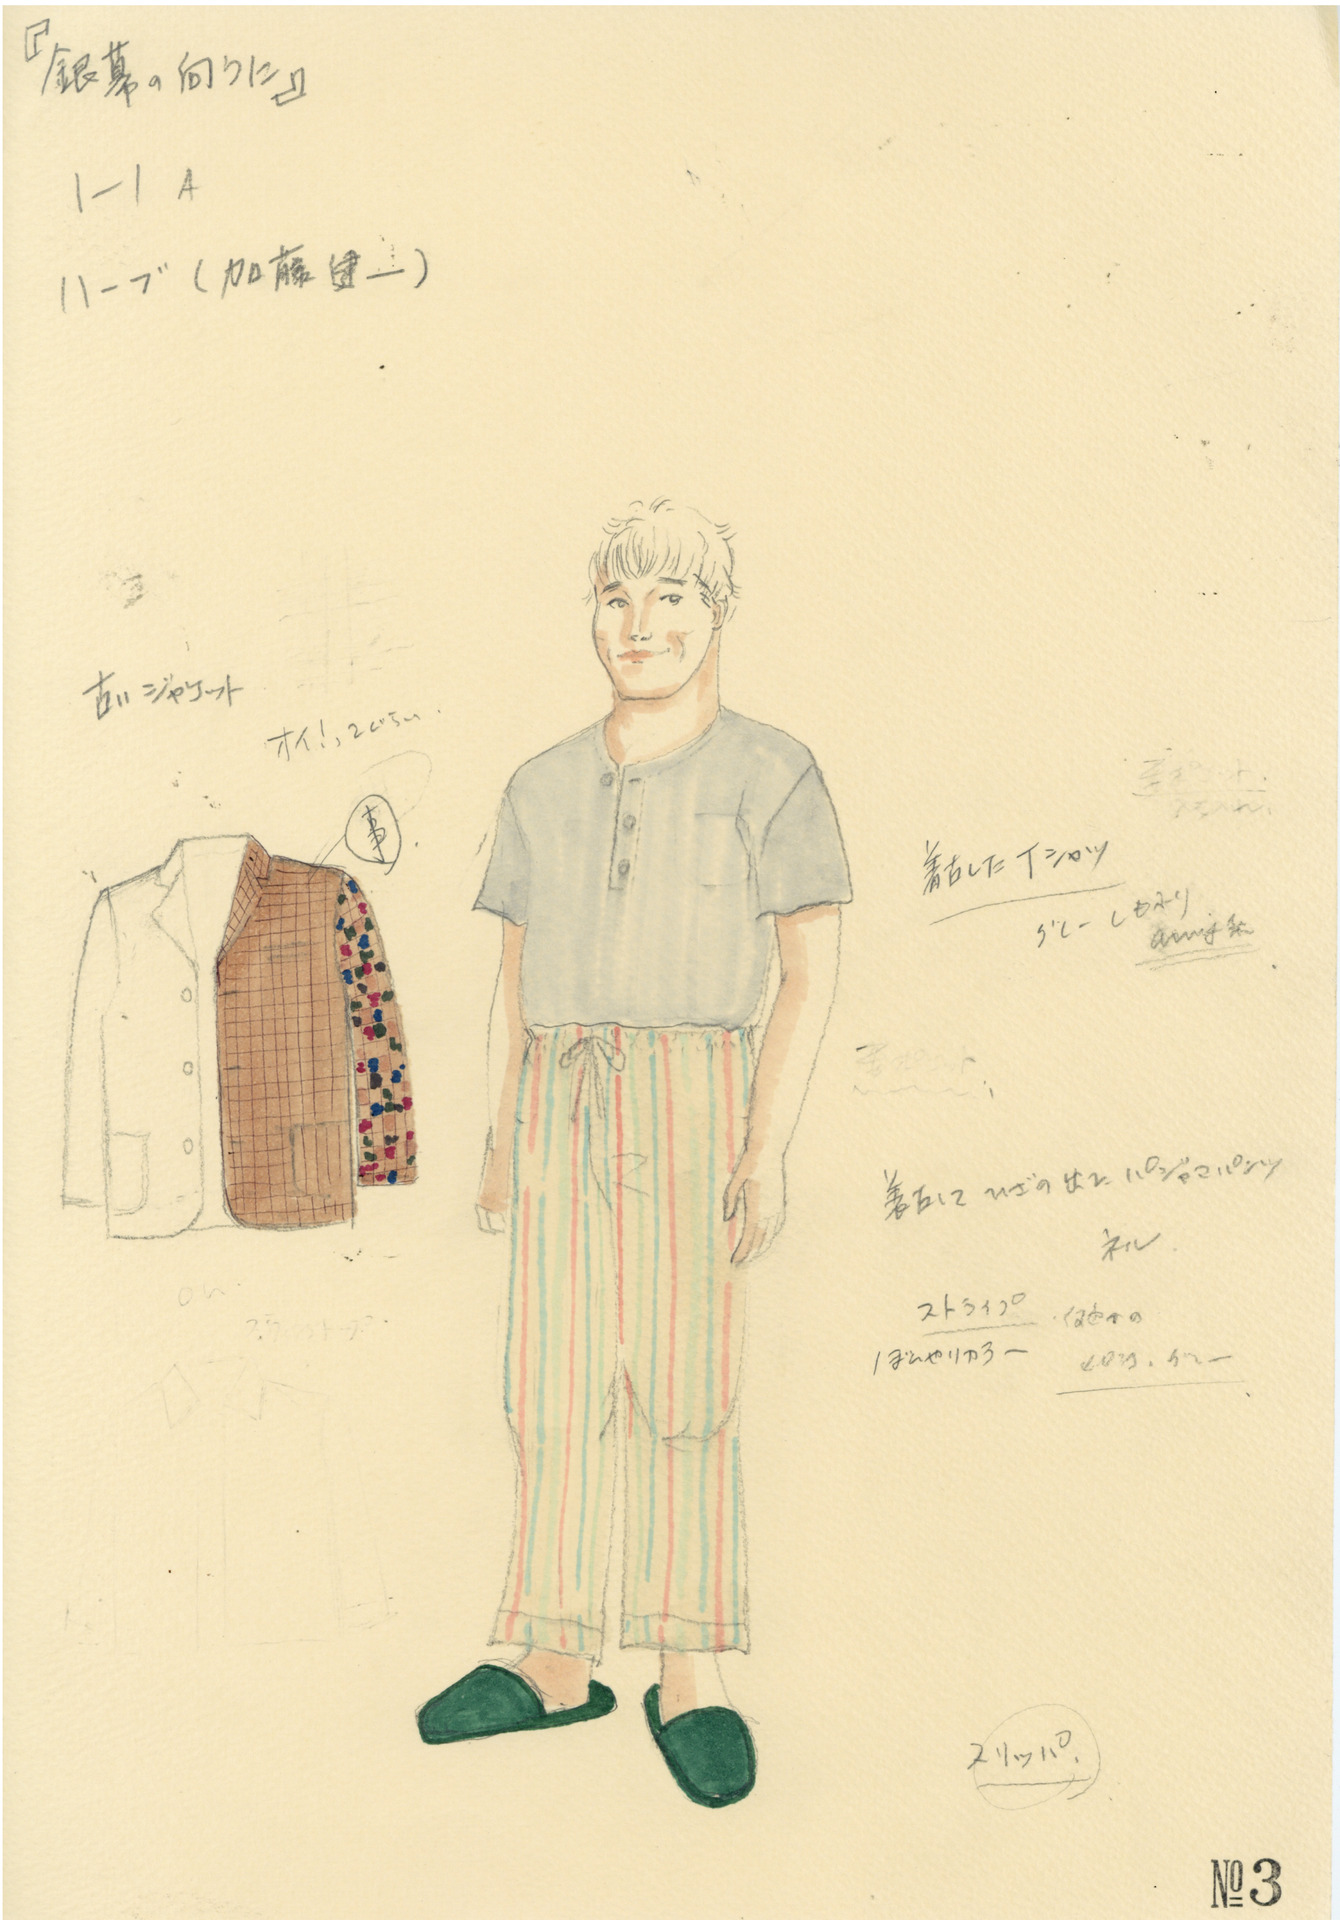 『銀幕の向うに』
1-1 A
ハーブ(加藤健一)
古いジャケット
オイ!ってぐらい.
事
着古した Tシャツ
グレー
着古して ひざの出た パジャマパンツ
ネル
ストライプ
ぼんやりカラー
グレー
スリッパ.
№3